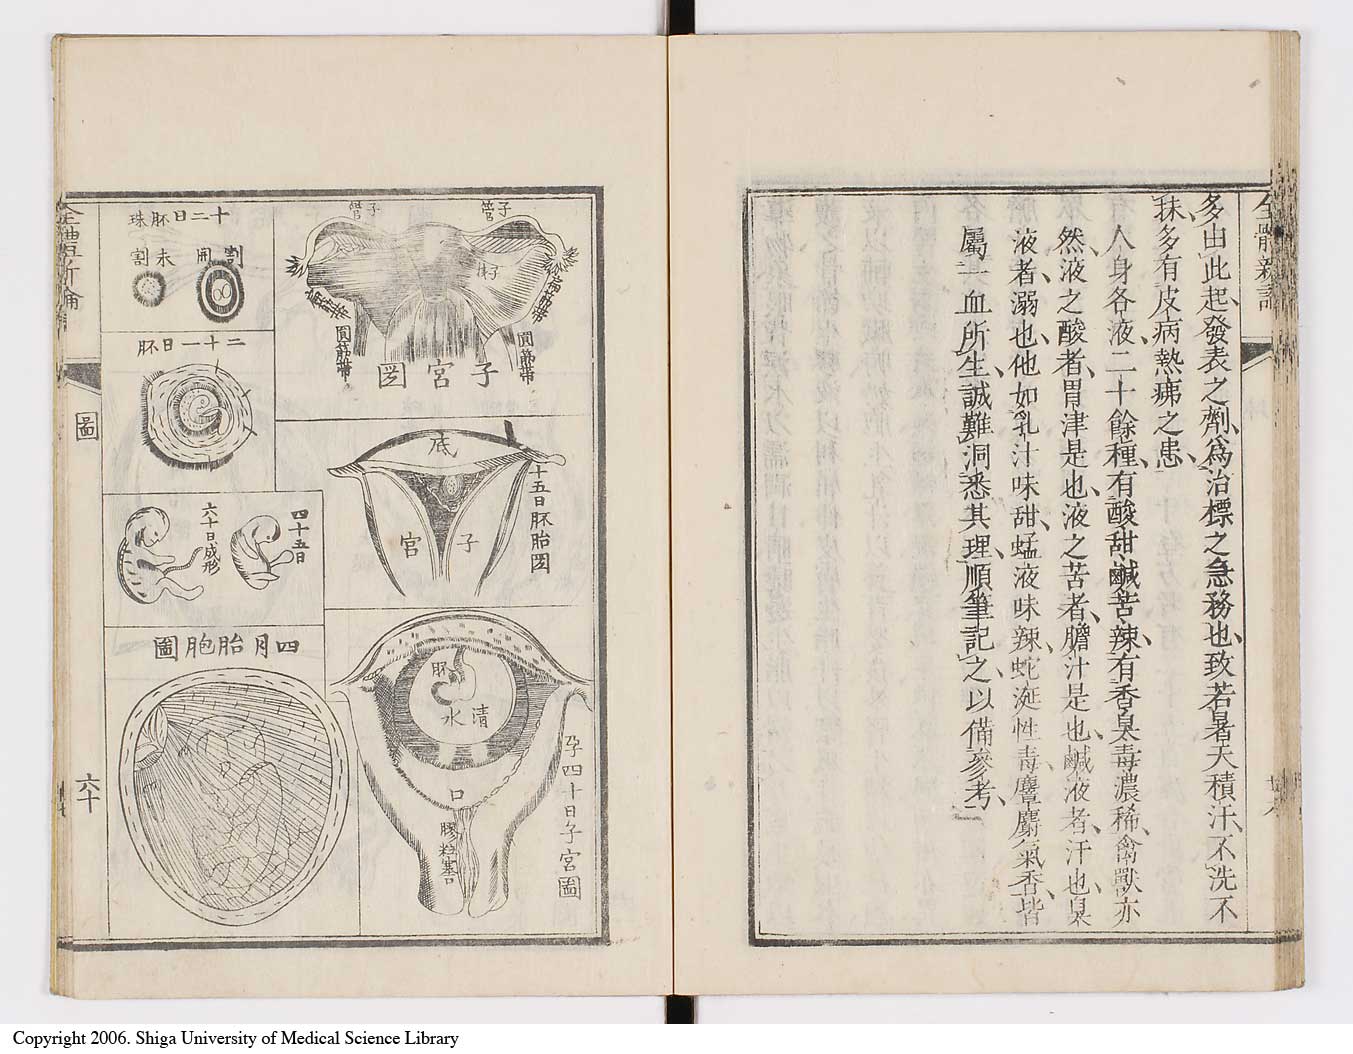 全體新論
多由此起發表之劑爲治標之急務也致若暑天積汗不洗不
抹多有皮病熱疿之患
有人身各液二十餘種有酸甜鹹苦辣有香臭毒濃稀禽獸亦
然液之酸者胃津是也液之苦者膽汁是也鹹液者汗也臭
液者溺也他如乳汁味甜蜢液味辣蛇涎性毒麞麝氣香皆
屬一血所生誠難洞悉其理順筆記之以備參考
廿八
子管
子管
圓筋帶
圓筋帶
子宮圖
底
子宮
十五日胚胎圖
胚
清水
口
膠粒塞口
孕四十日子宮圖
十二日胚珠
割開
未割
二十一日胚
四十五日
六十日成形
四月胎胞圖
全體新論
圖
六十
Copyright 2006. Shiga University of Medical Science Library